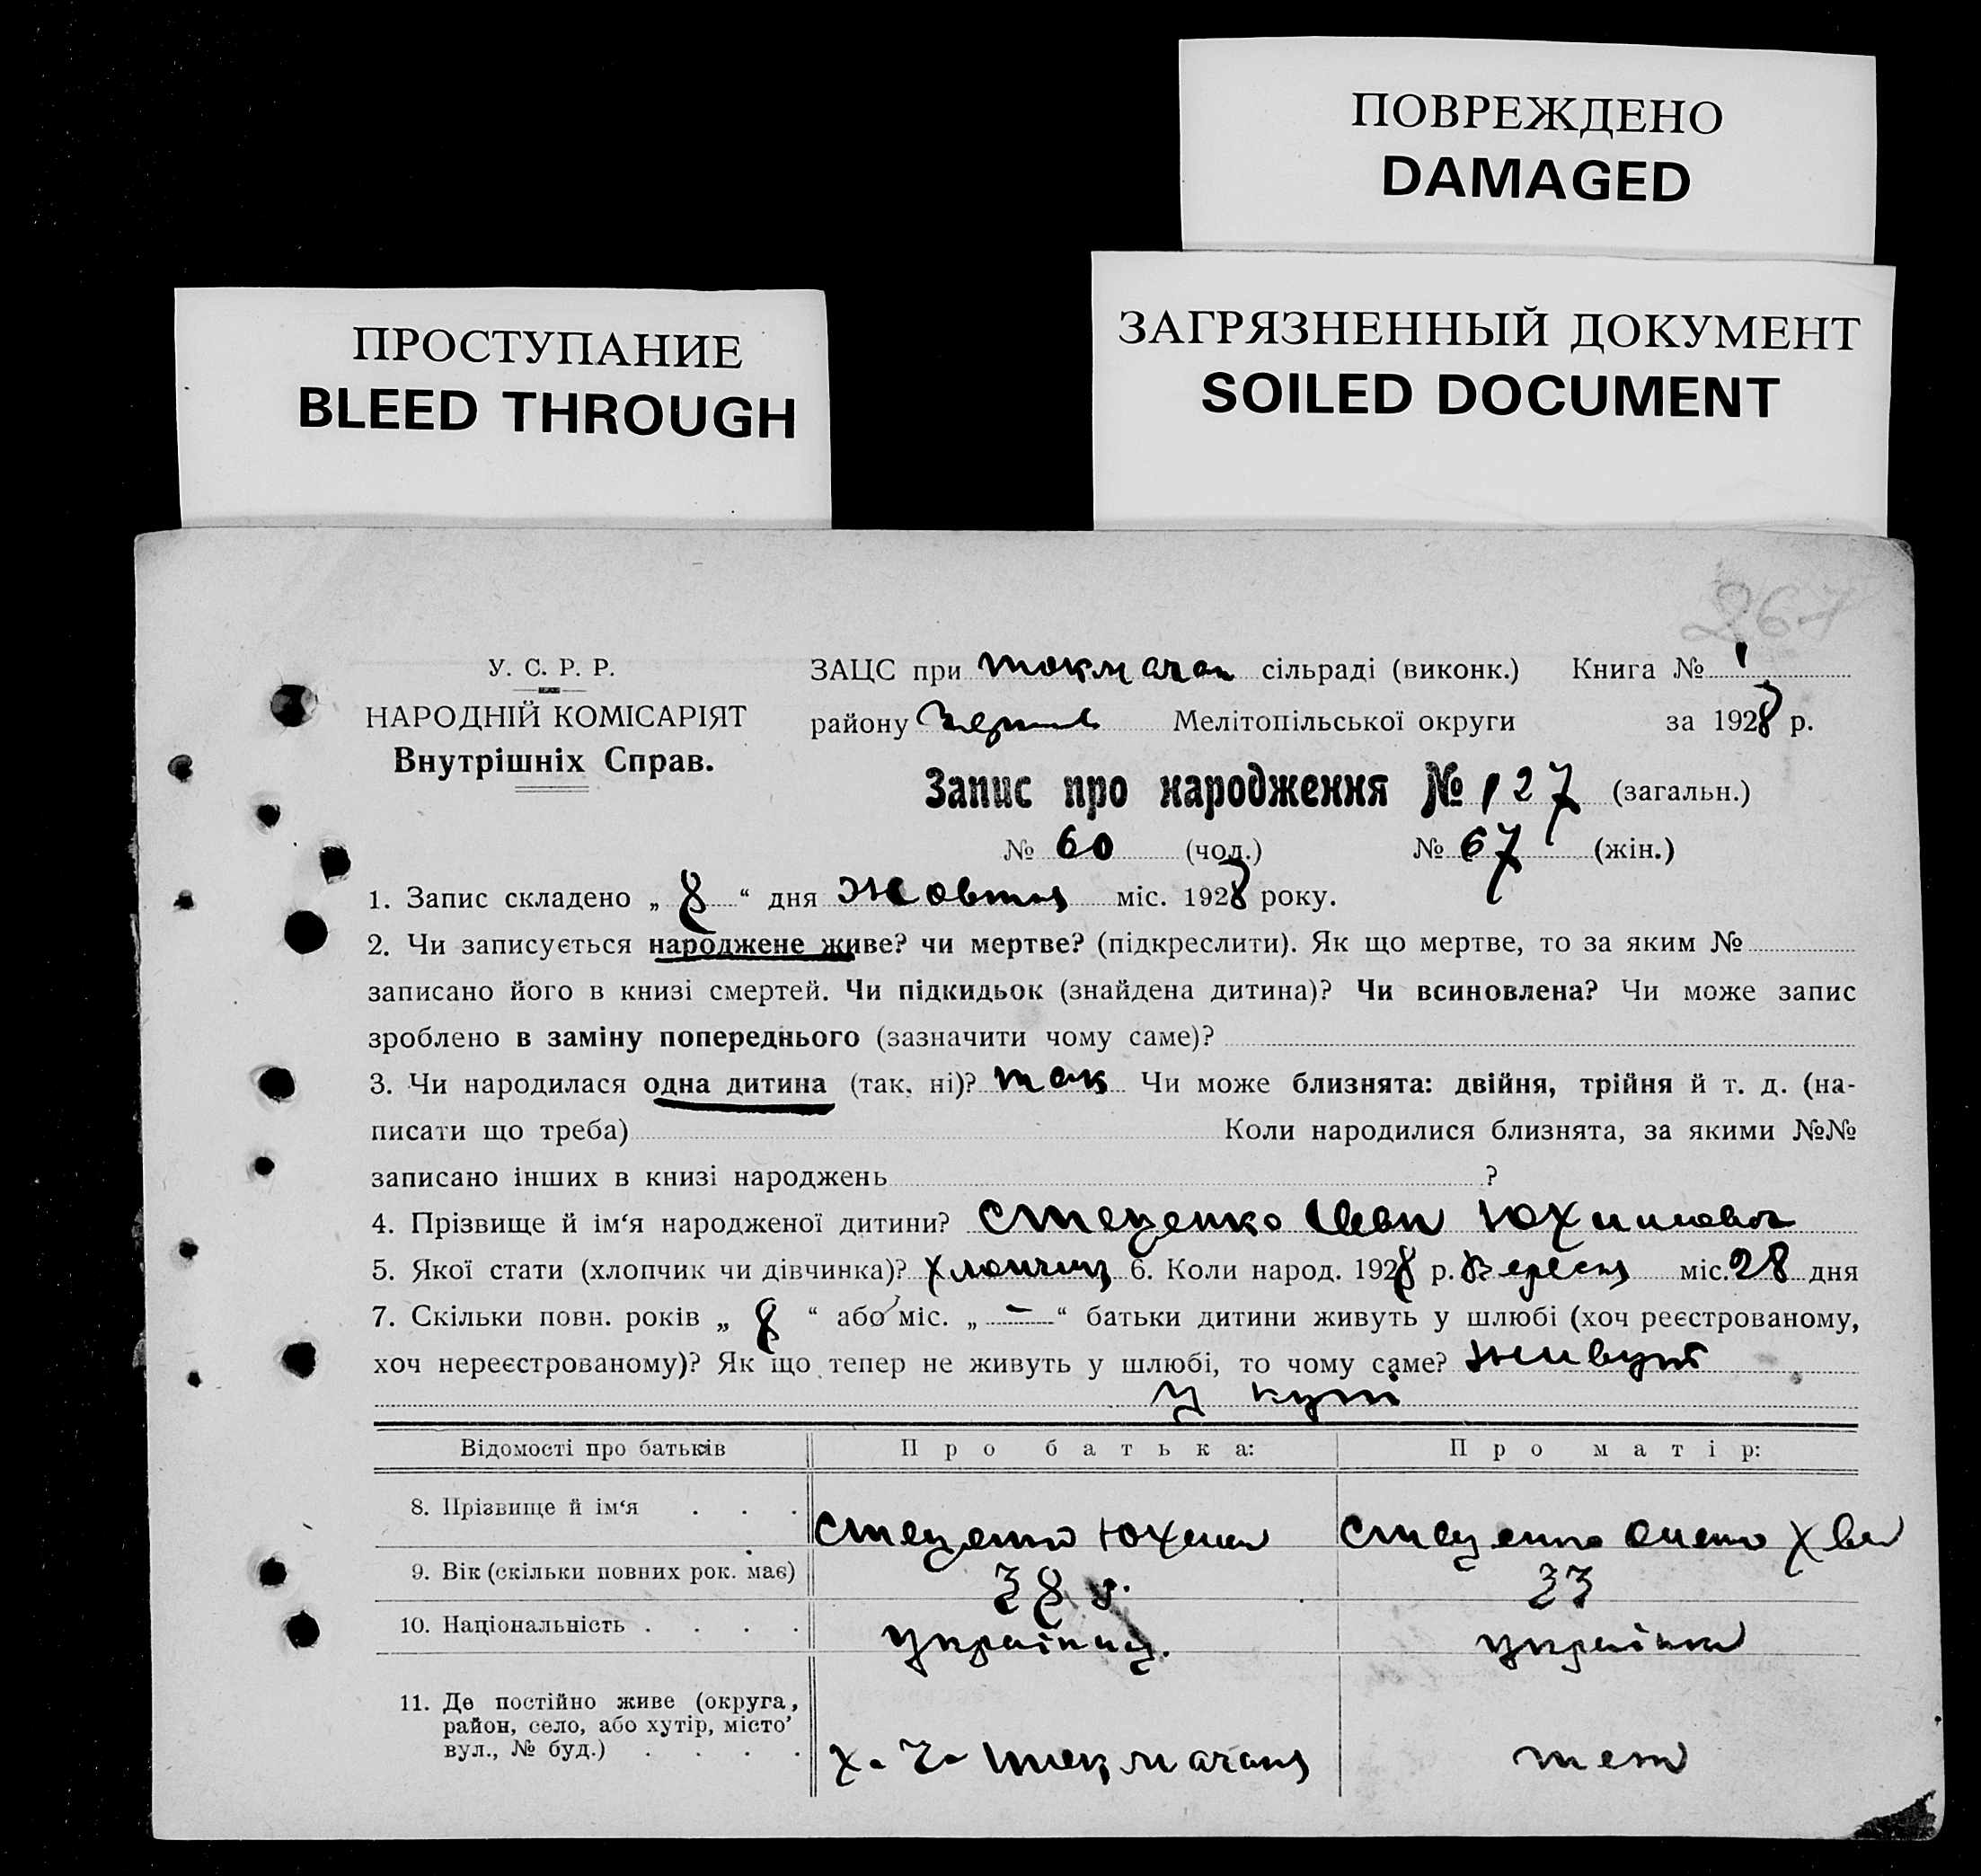 ПОВРЕЖДЕНО
DAMAGED
ПРОСТУПАНИЕ
BLEED THROUGH
ЗАГРЯЗНЕННЫЙ ДОКУМЕНТ
SOILED DOCUMENT
267
У. С. Р. Р.
НАРОДНІЙ КОМІСАРІЯТ
Внутрішніх Справ.
ЗАЦС при сільраді (виконк.) Книга № 1
району Мелітопільської округи за 1928 р.
Запис про народження № 127 (загальн.)
№ 60 (чол.) № 67 (жін.)
1. Запис складено „ 8 “ дня Жовтня міс. 1928 року.
2. Чи записується народжене живе? чи мертве? (підкреслити). Як що мертве, то за яким №
записано його в книзі смертей. Чи підкидьок (знайдена дитина)? Чи всиновлена? Чи може запис
зроблено в заміну попереднього (зазначити чому саме)?
3. Чи народилася одна дитина (так, ні)? так Чи може близнята: двійня, трійня й т. д. (на-
писати що треба) Коли народилися близнята, за якими №№
записано інших в книзі народжень ?
4. Прізвище й ім‘я народженої дитини? Стеценко Іван Юхимович
5. Якої стати (хлопчик чи дівчинка)? хлопчик 6. Коли народ. 1928 р. Вересня міс. 28 дня
7. Скільки повн. років „ 8 “ або міс. „ — “ батьки дитини живуть у шлюбі (хоч реєстрованому,
хоч нереєстрованому)? Як що тепер не живуть у шлюбі, то чому саме? живуть
у купі
Відомості про батьків Про батька: Про матір:
8. Прізвище й ім‘я . . . Стеценко Юхим Стеценко
9. Вік (скільки повних рок. має) 38 р. 33
10. Національність . . . . українец. українка
11. Де постійно живе (округа,
район, село, або хутір, місто,
вул., № буд.) . . . . х. теж